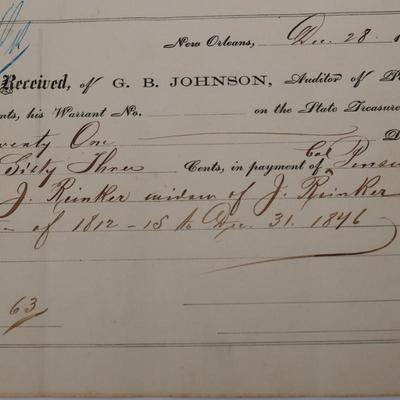 New Orleans, Dec. 28
Received, of G. B. JOHNSON, Auditor of P
nts, his Warrant No. on the State Treasure
enty One D
Sixty Three Cents, in payment of Bal Pensi
J. Reinker widow of J. Reinker
of 1812-15 to Dec. 31. 1846
63